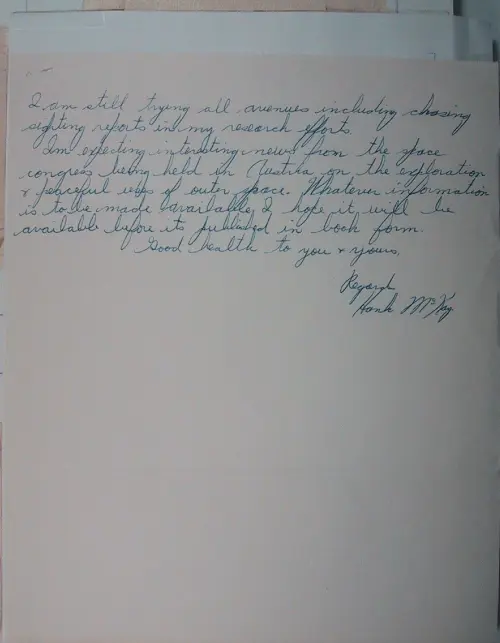 I am still trying all avenues including chasing
sighting reports in my research efforts.
Im expecting interesting news from the space
congress being held in Austria on the exploration
& peaceful uses of outer space. Whatever information
is to be made available, I hope it will be
available before its published in book form.
Good health to you & yours,
Regards
Hank McKay